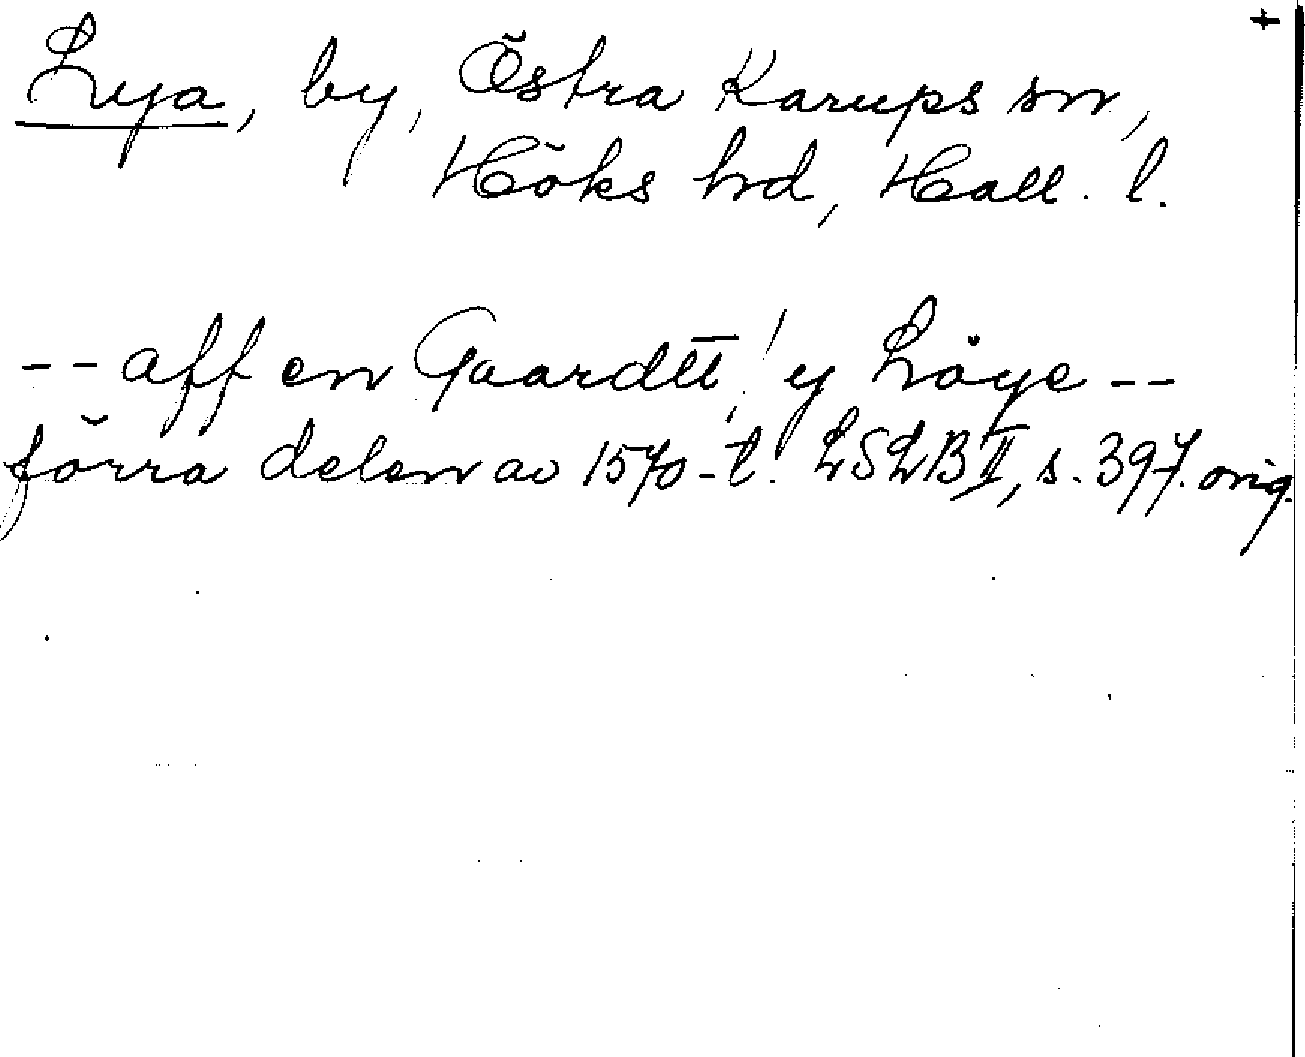 +
Lya, by, Östra Karups sn,
Höks hd, Hall. l.
-- aff en Gaardtt ! y Löye --
förra delen av 1570-t. LSLB II, s. 397. orig.